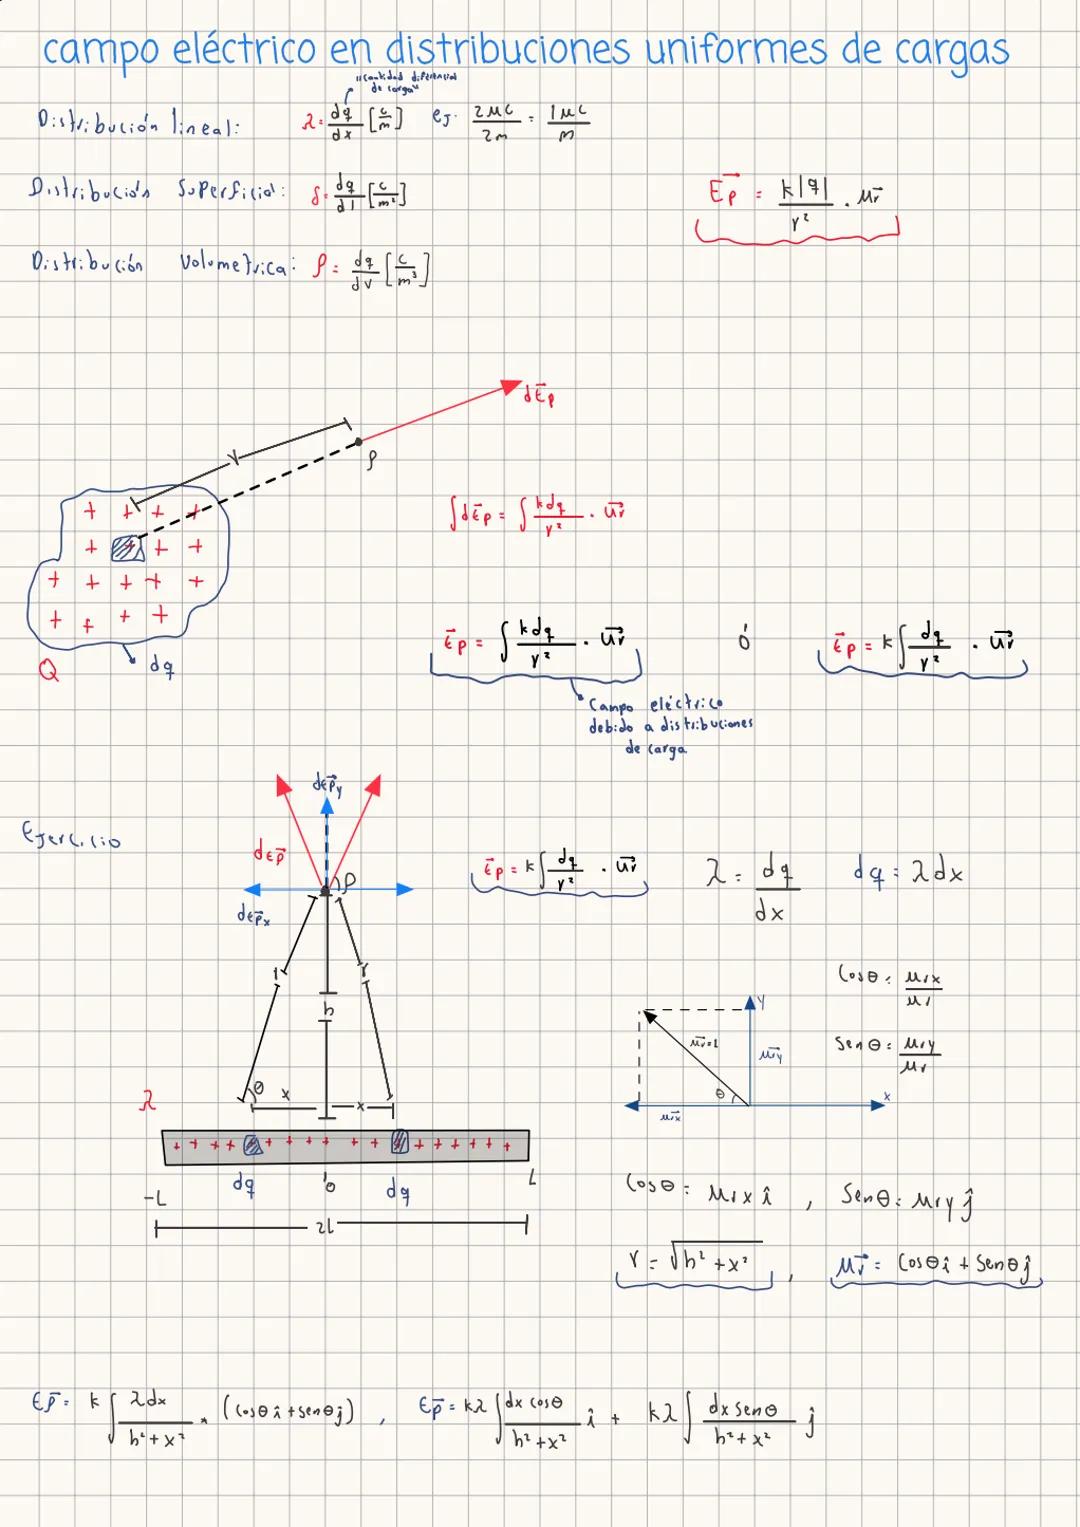 campo eléctrico en distribuciones uniformes de cargas
"cantidad diferencial
de carga"
Distribución lineal: λ = dq/dx [c/m] ej. 2μc/2m = 1μc/m
Distribución Superficial: δ = dq/d1 [c/m²]
E⃗p = k|q|/r² · μr⃗
Distribución Volumetrica: ρ = dq/dv [c/m³]
dE⃗p
r
p
∫dE⃗p = ∫ kdq/r² · ur⃗
Q
dq
E⃗p = ∫ kdq/r² · ur⃗ ó E⃗p = k∫ dq/r² · ur⃗
Campo eléctrico
debido a distribuciones
de carga
Ejercicio
dEp⃗y
dEp⃗
ρ
dEp⃗x
E⃗p = k∫ dq/r² · ur⃗ λ = dq/dx dq = λdx
r r
h
θ x x
λ
+ + + + + + + + + + + + + + +
dq 0 dq
-L L
2L
y
μr⃗=1
μr⃗y
θ
x
μr⃗x
Cosθ = μrx/μr
Senθ = μry/μr
Cosθ = μrx î , Senθ = μry ĵ
r = √h² + x² , μr⃗ = Cosθ î + Senθ ĵ
Ep⃗ = k ∫ λdx/h² + x² * (cosθ î + senθ ĵ) , Ep⃗ = kλ ∫ dx cosθ/h² + x² î + kλ ∫ dx senθ/h² + x² ĵ